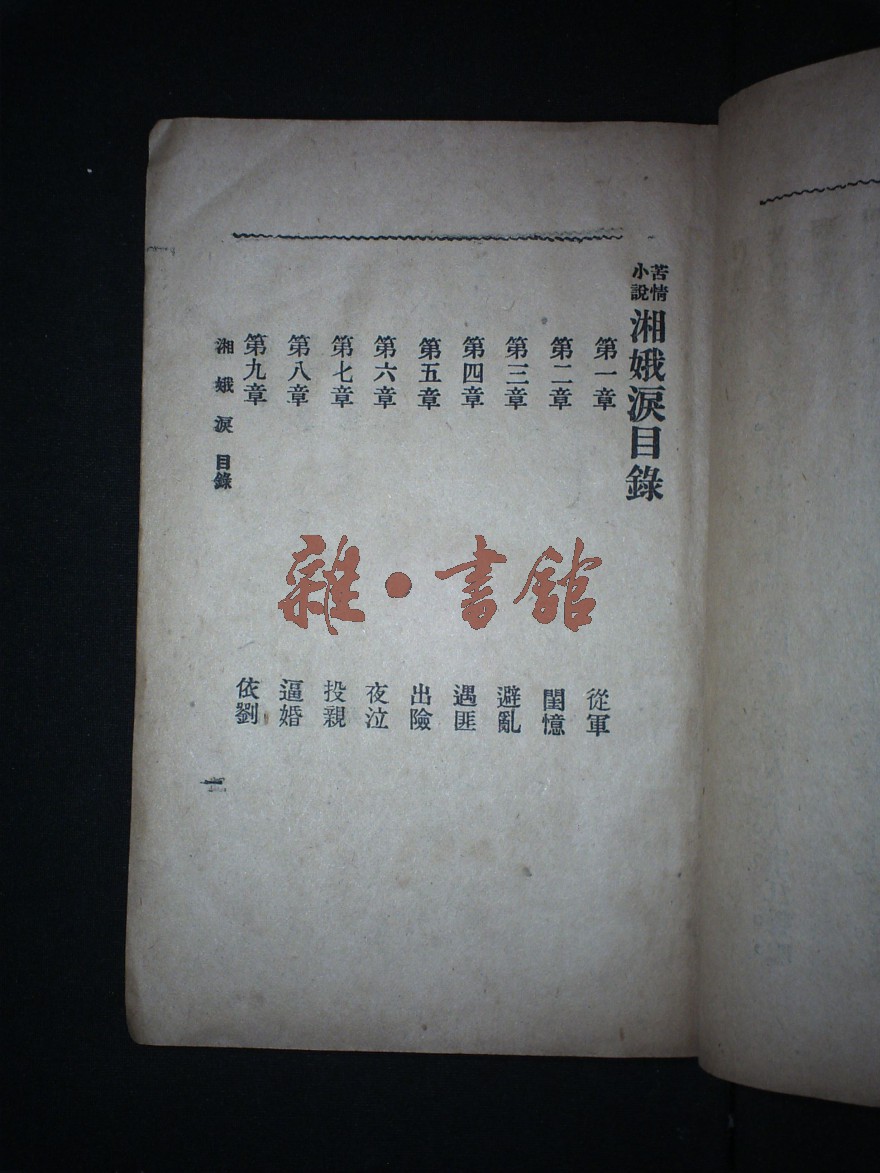 苦情小說 湘娥淚目錄
第一章 從軍
第二章 閨憶
第三章 避亂
第四章 遇匪
第五章 出險
第六章 夜泣
第七章 投親
第八章 逼婚
第九章 依劉
湘娥淚 目錄
一
雜·書館